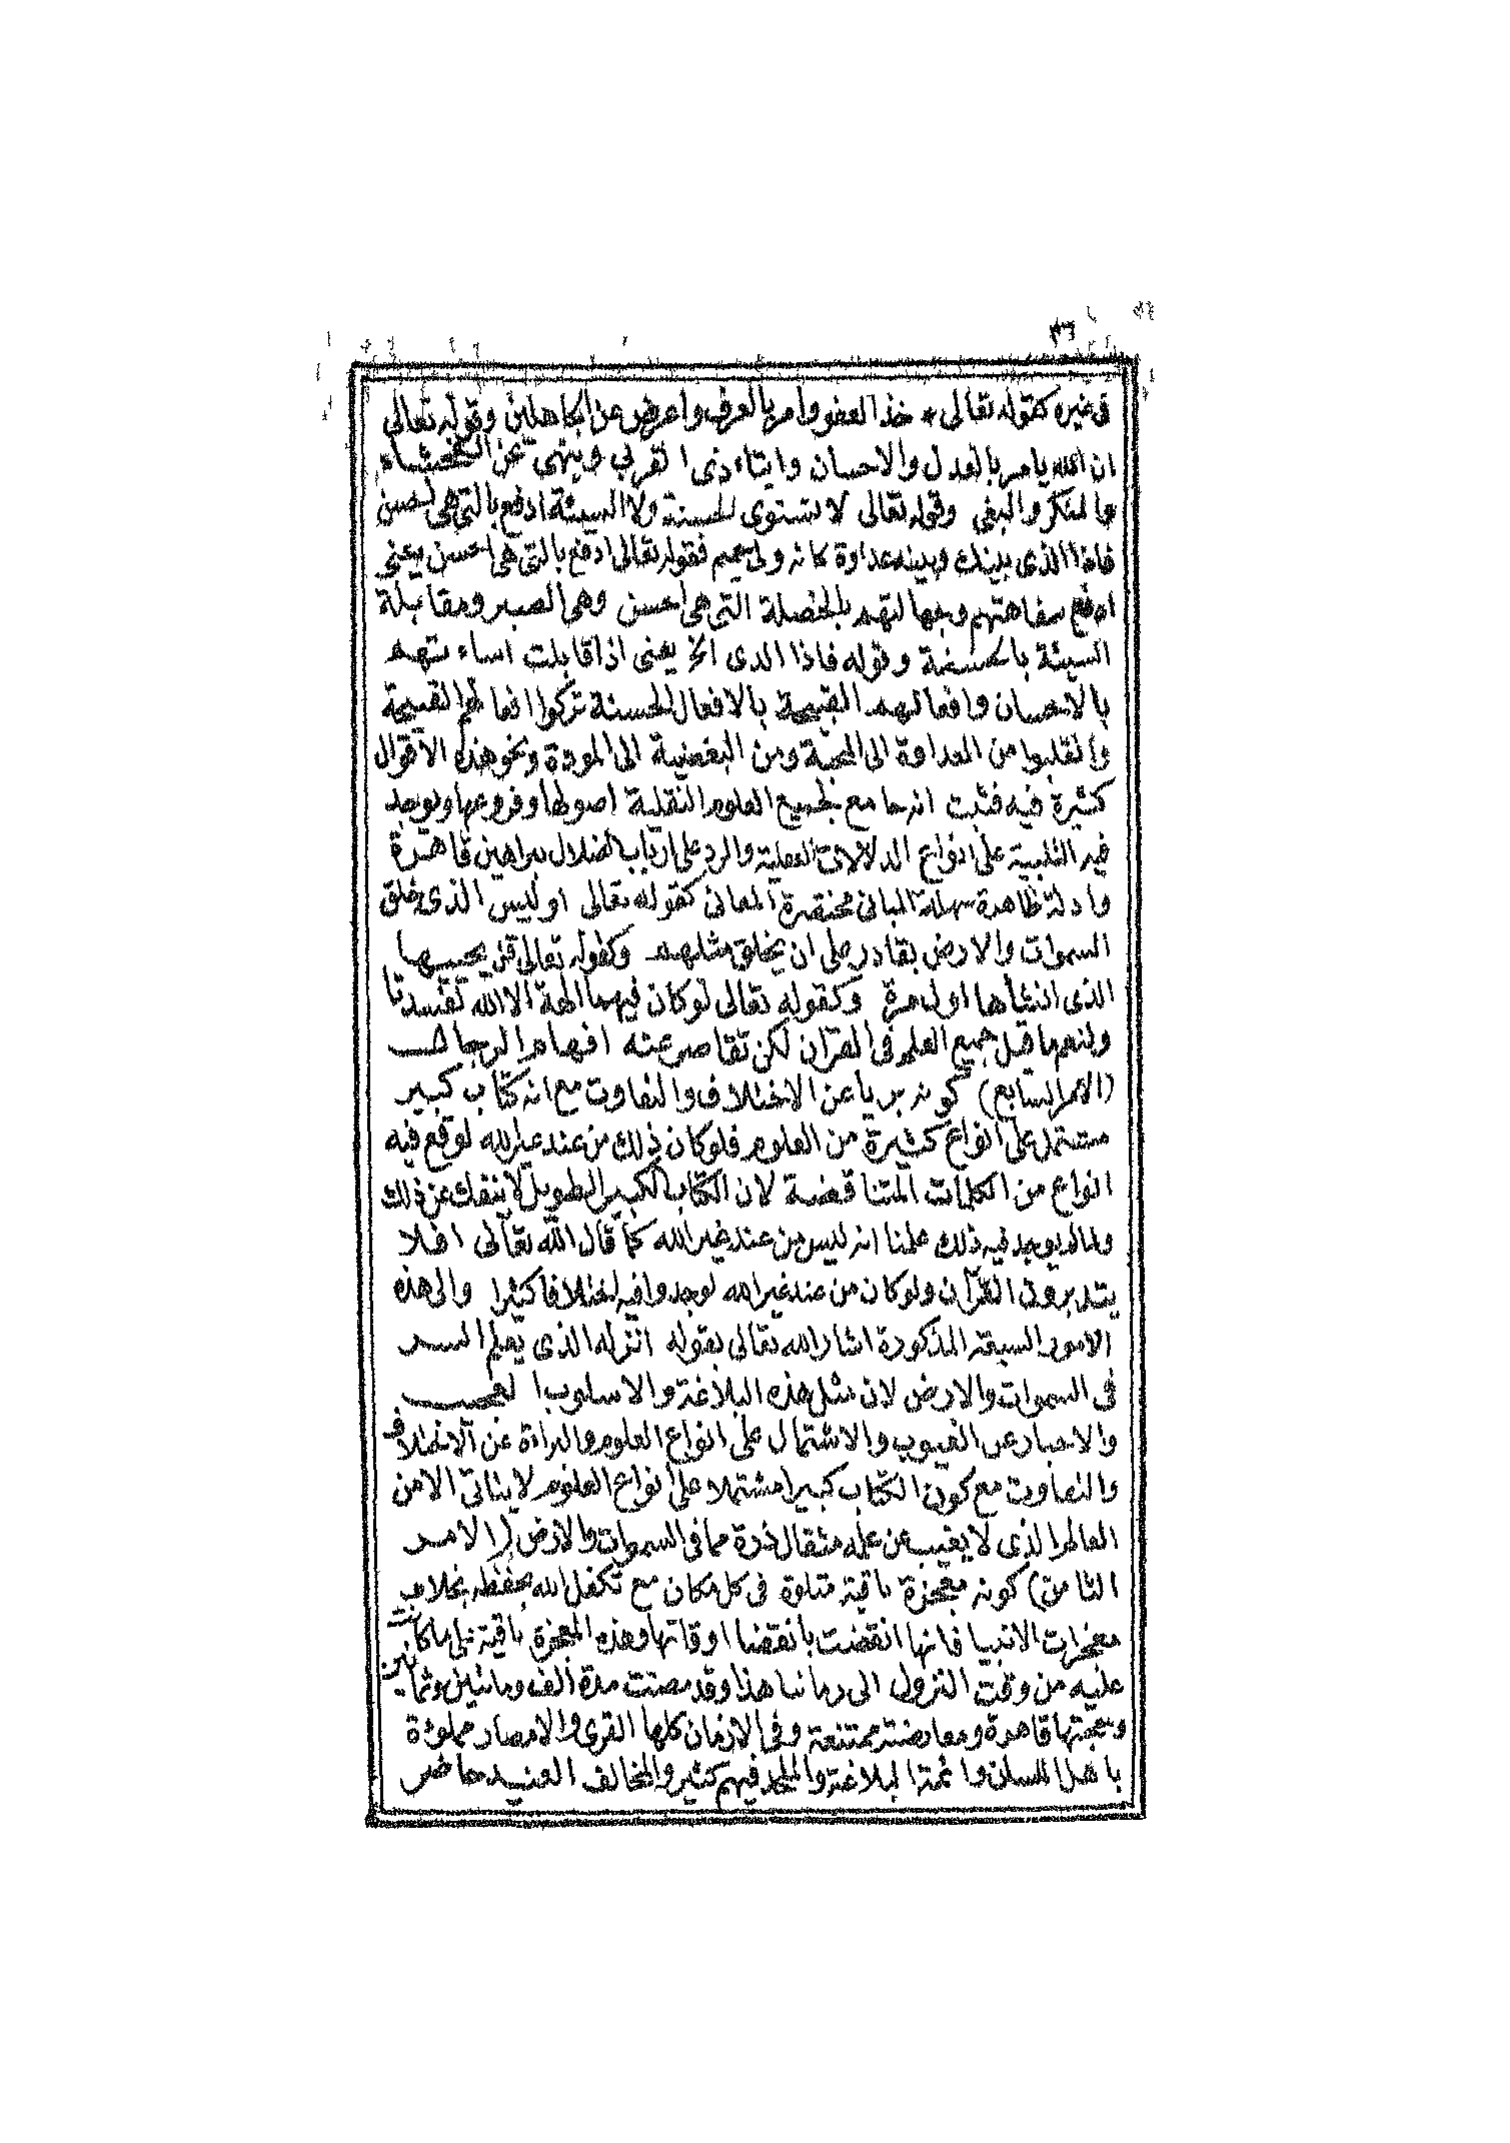 ٣٦
فى غيره كقوله تعالى * خذ العفو وامر بالعرف واعرض عن الجاهلين وقوله تعالى
ان الله يامر بالعدل والاحسان وايتاء ذى القربى وينهى عن الفحشاء
والمنكر والبغى وقوله تعالى لا تستوى الحسنة ولا السيئة ادفع بالتى هى احسن
فاذا الذى بينك وبينه عداوة كانه ولى حميم فقوله تعالى ادفع بالتى هى احسن يعنى
ادفع سفاهتهم وجهالتهم بالخصلة التى هى احسن وهى الصبر ومقابلة
السيئة بالحسنة وقوله فاذا الذى الخ يعنى اذا قابلت اساءتهم
بالاحسان وافعالهم القبيحة بالافعال الحسنة تركوا افعالهم القبيحة
وانقلبوا من العداوة الى المحبة ومن البغضية الى المودة ونحو هذه الاقوال
كثيرة فيه فثبت انه جامع لجميع العلوم النقلية اصولها وفروعها ويوجد
فيه التنبيه على انواع الدلالات العقلية والرد على ارباب الضلال ببراهين قاهرة
وادلة ظاهرة سهلة المبانى مختصرة المعانى كقوله تعالى اوليس الذى خلق
السموات والارض بقادر على ان يخلق مثلهم وكقوله تعالى قل يحييها
الذى انشأها اول مرة وكقوله تعالى لو كان فيهما الهة الا الله لفسدتا
ولنعم ما قيل جميع العلم فى القرآن لكن تقاصر عنه افهام الرجال
(الامر السابع) كونه بريا عن الاختلاف والتفاوت مع انه كتاب كبير
مشتمل على انواع كثيرة من العلوم فلو كان ذلك من عند غير الله لوقع فيه
انواع من الكلمات المتناقضة لان الكتاب الكبير الطويل لا ينفك عن ذلك
ولما لم يوجد فيه ذلك علمنا انه ليس من عند غير الله كما قال الله تعالى افلا
يتدبرون القرآن ولو كان من عند غير الله لوجدوا فيه اختلافا كثيرا والى هذه
الامور السبعة المذكورة اشار الله تعالى بقوله انزله الذى يعلم السر
فى السموات والارض لان مثل هذه البلاغة والاسلوب العجيب
والاخبار عن الغيوب والاشتمال على انواع العلوم والبراءة عن الاختلاف
والتفاوت مع كون الكتاب كبيرا مشتملا على انواع العلوم لا يتاتى الا من
العالم الذى لا يغيب عن علمه مثقال ذرة مما فى السموات والارض (الامر
الثامن) كونه معجزة باقية متلوة فى كل مكان مع تكفل الله بحفظه بخلاف
معجزات الانبيا فانها انقضت بانقضا اوقاتها وهذه المعجزة باقية على ما كانت
عليه من وقت النزول الى زماننا هذا وقد مضت مدة الف ومائتين وثمانين
وحجتها قاهرة ومعارضته ممتنعة وفى الازمان كلها القرى والامصار مملوة
باهل اللسان وائمة البلاغة والملحد فيهم كثير والمخالف العنيد حاضر